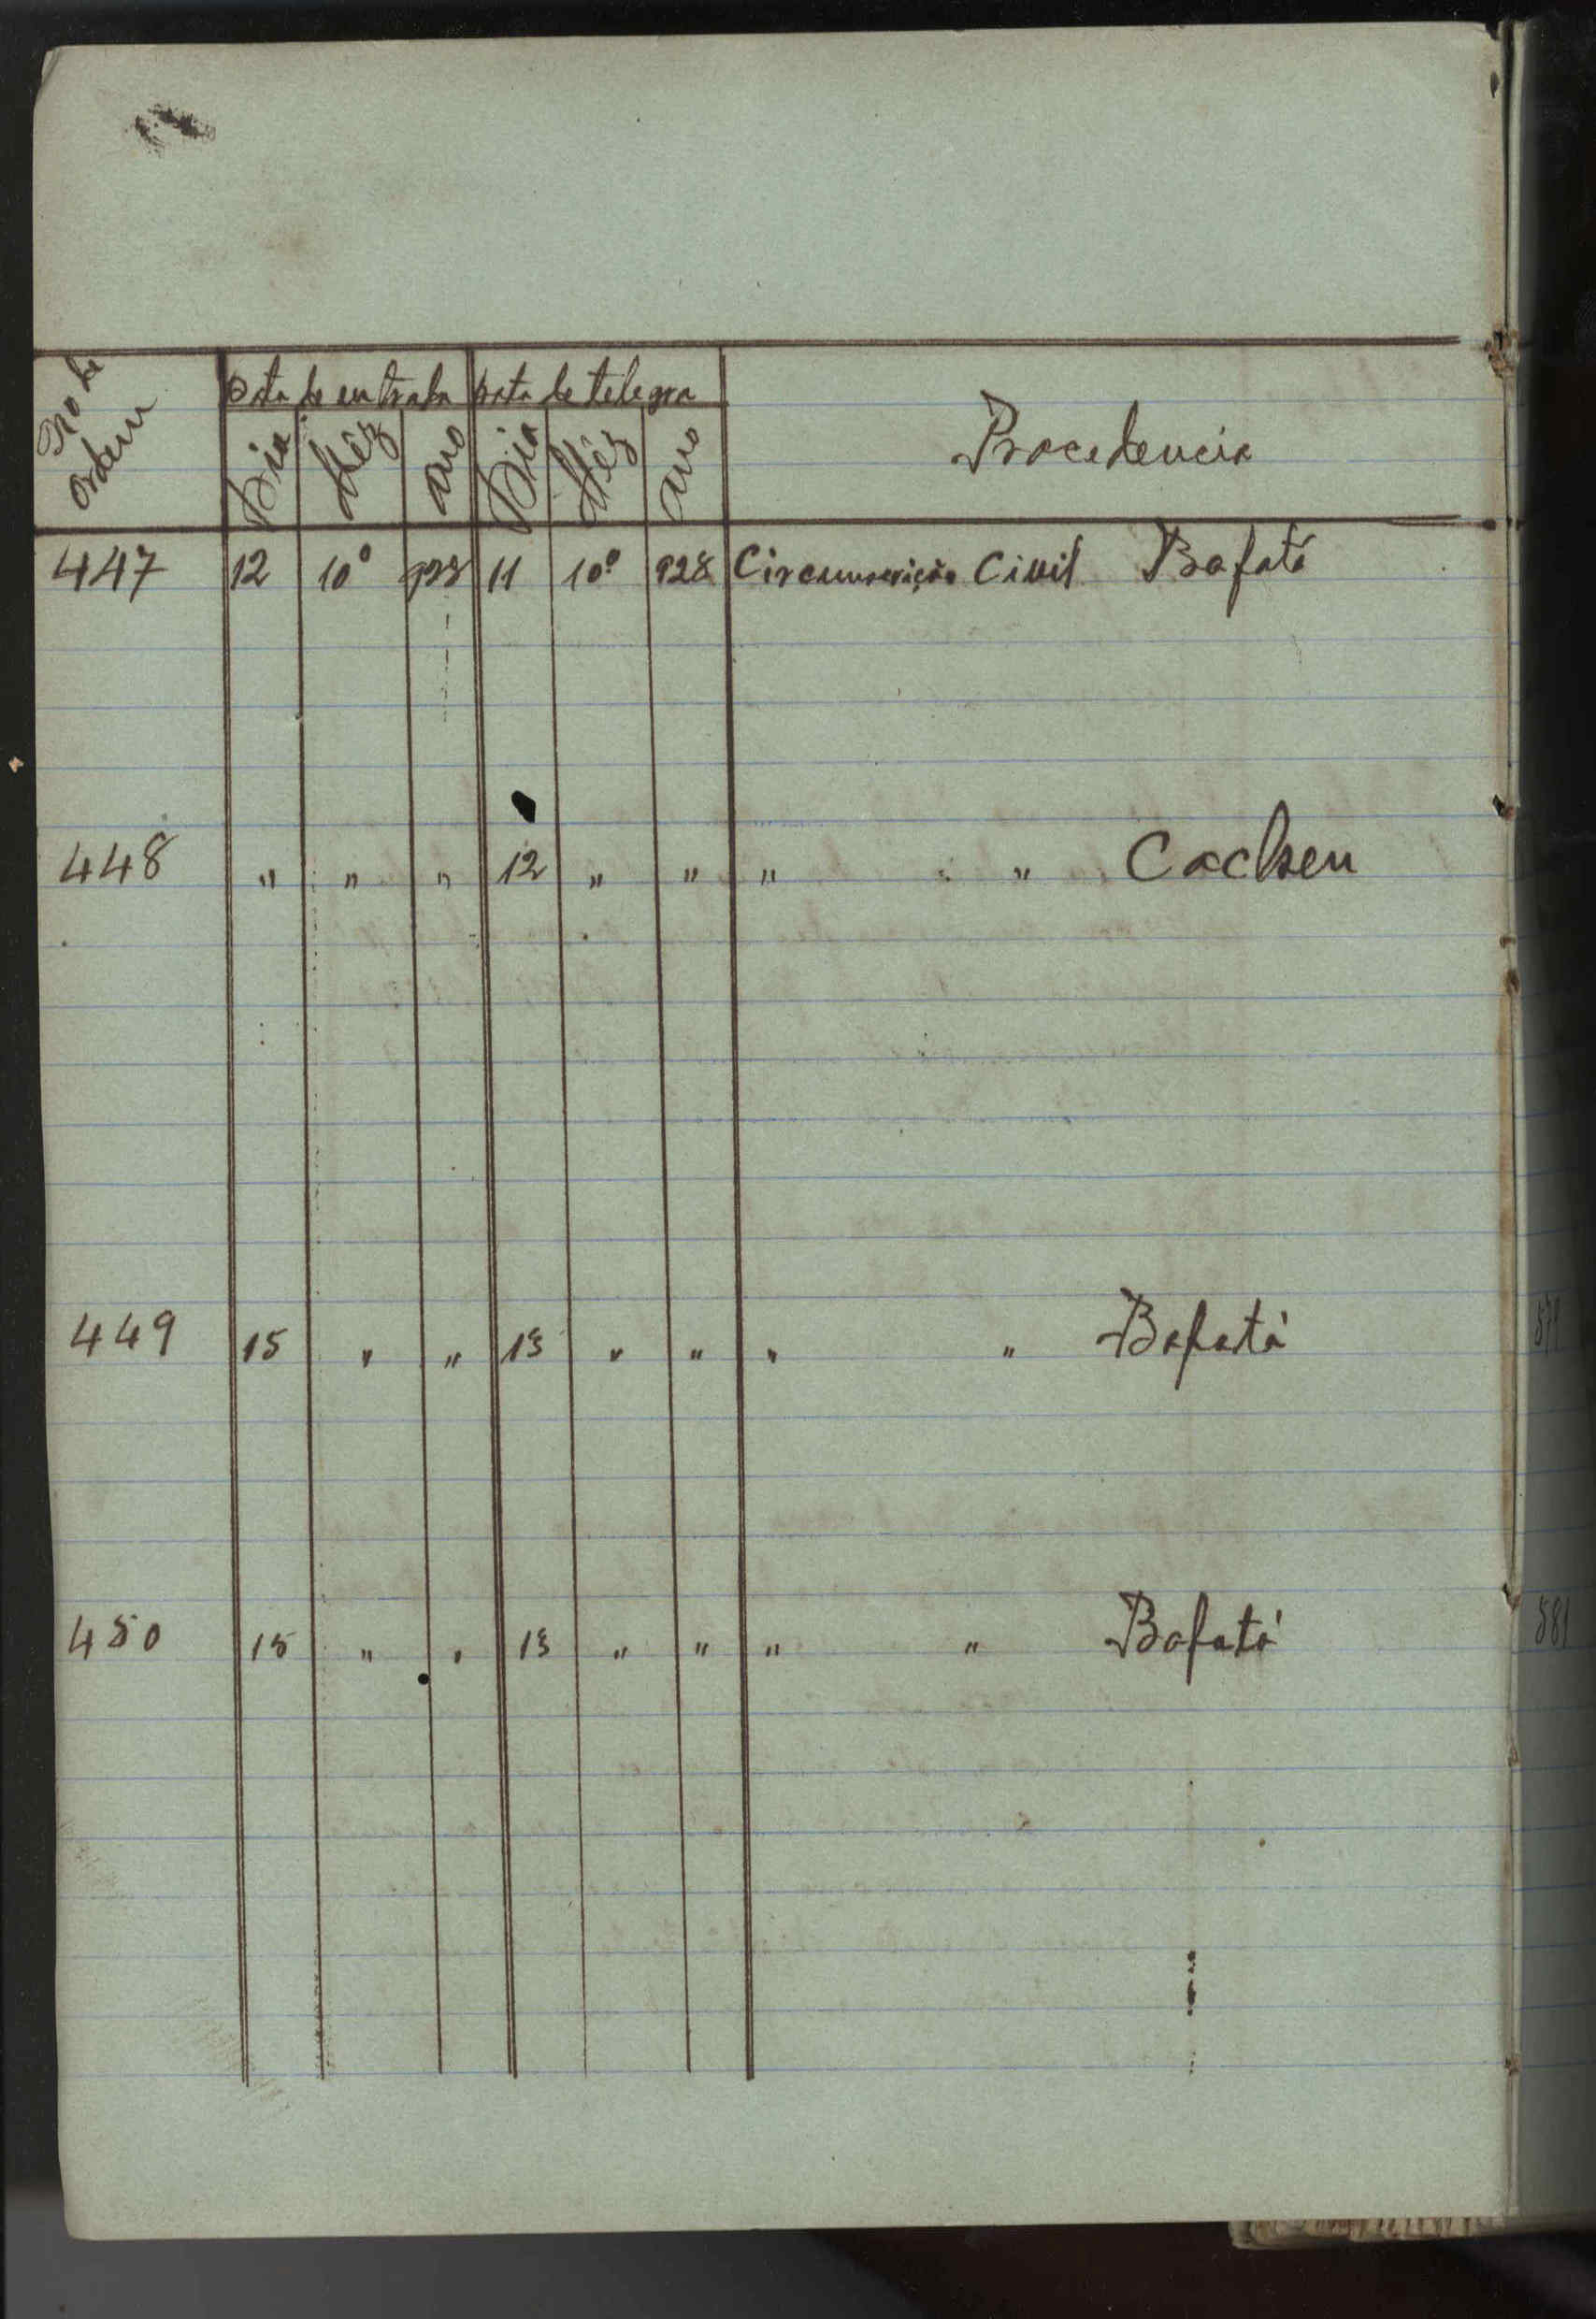 No de ordem
Data de entrada Data de telegra
Dia Mêz ano Dia Mêz ano Procedencia
447 12 10º 928 11 10º 928 Circunscrição Civil Bafatá
448 " " " 12 " " " " Cacheu
449 15 " " 13 " " " " Bafatá
450 15 " " 13 " " " " Bafatá
581